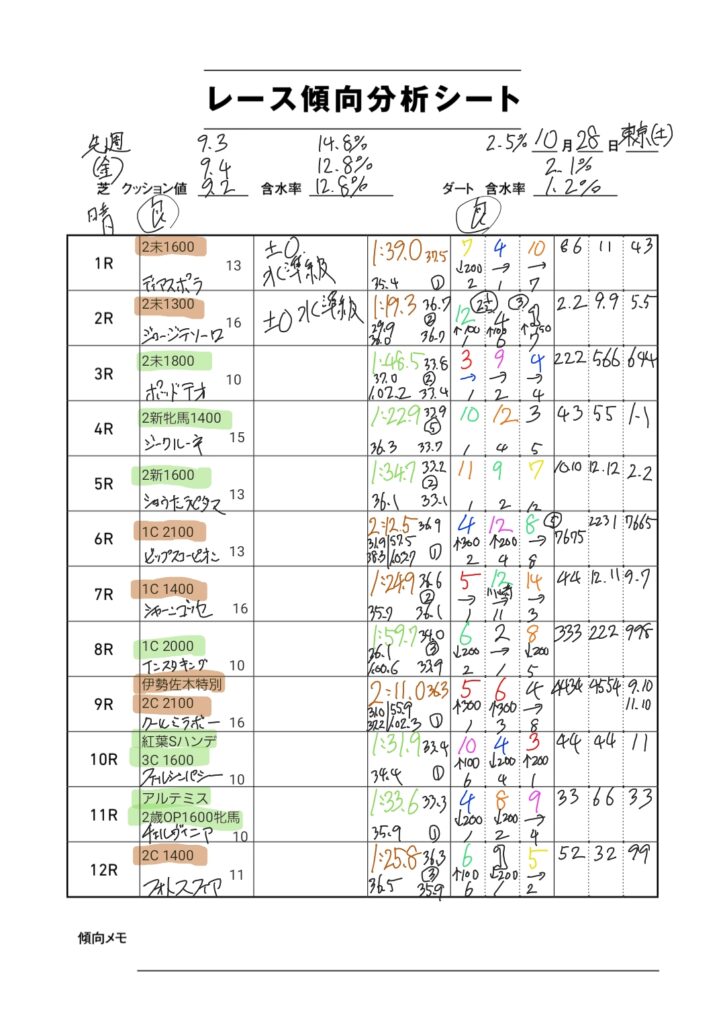 レース傾向分析シート
先週 9.3 14.8% 2.5% 10月28日 東京(土)
(金) 9.4 12.8% 2.1%
芝 クッション値 9.2 含水率 12.8% ダート 含水率 1.2%
晴 良 良
1R 2未1600 13 ±0 水準級 1:39.0 37.5 7 4 10 86 11 43
ディアスポラ 35.4 ① ↓200 → →
2 1 7
2R 2未1300 16 ±0 水準級 1:19.3 36.7 12 4 1 2.2 9.9 5.5
ジョージテソーロ ② 36.7 ↑100 ↑100 ↑150
1 6 7
3R 2未1800 10 1:48.5 33.8 3 9 4 222 566 644
ボッドテオ 37.0 ② → → →
1:02.2 37.4 1 2 4
4R 2新牝馬1400 15 1:22.9 32.9 10 12 3 43 55 1-1
ジークルーネ ⑤
36.3 33.7 1 4 5
5R 2新1600 13 1:34.7 33.2 11 9 7 10.10 12.12 2.2
ショウナンラピダス ②
36.1 33.1 1 2 12
6R 1C 2100 13 2:12.5 36.9 4 12 8 7675 2231 7665
ビップスコーピオン ① ↑300 ↑200 →
2 4 8
7R 1C 1400 16 1:24.9 36.6 5 12 14 44 12.11 9.7
② → 川崎 → →
35.7 36.1 1 11 3
8R 1C 2000 10 1:59.7 34.0 6 2 8 333 222 998
インスタキング 36.1 ③ ↓200 → ↓200
1:00.6 33.9 2 1 5
9R 伊勢佐木特別
2C 2100 16 2:11.0 36.3 5 6 4 4434 4554 9.10
11.10
クールミラボー ① ↑300 ↑300 →
1 3 8
10R 紅葉Sハンデ
3C 1600 10 1:31.9 33.4 10 4 3 44 44 11
ファルシンパシー 34.4 ① ↑100 ↓200 ↑200
6 4 1
11R アルテミス
2歳OP1600牝馬 10 1:33.6 33.3 4 8 9 33 66 33
チェルヴィニア 35.9 ① ↓200 ↓200 →
1 2 4
12R 2C 1400 11 1:25.8 36.3 6 1 5 52 32 99
フォトスフィア ③ ↑100 ↓200 →
36.5 35.9 6 1 2
傾向メモ